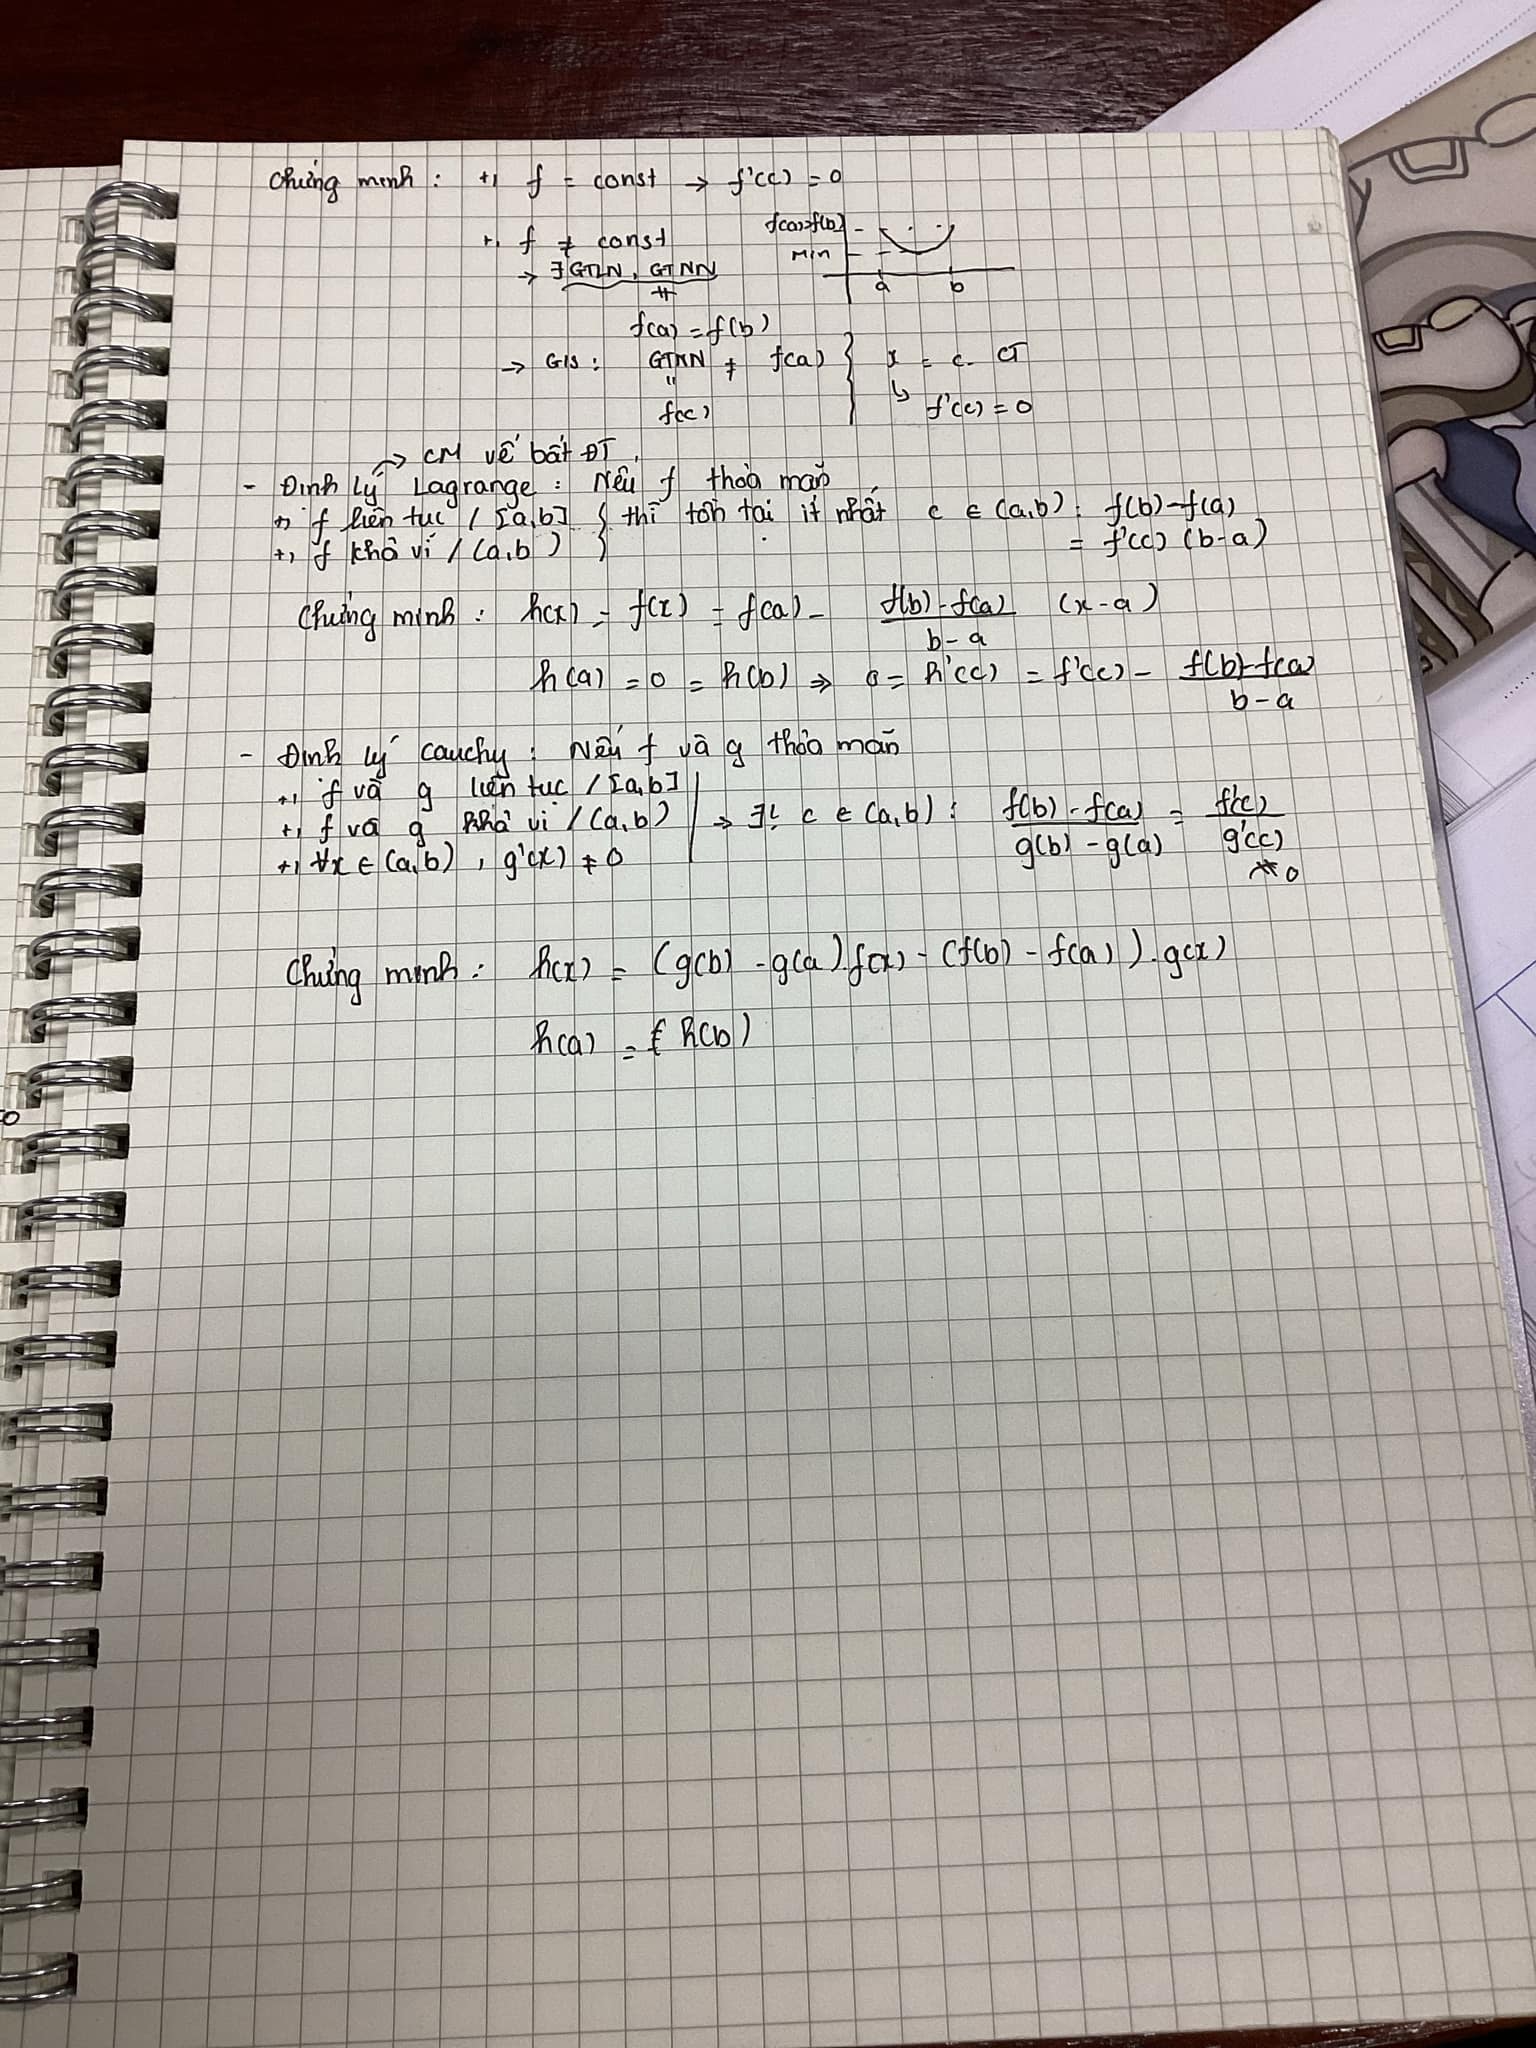 Chứng minh : +, f = const → f'(c) = 0
+, f ≠ const
f(a)=f(b)
Min
a b
→ ∃ GTLN, GTNN
≠
f(a) = f(b)
→ G/S : GTNN ≠ f(a) } x = c. CT
"
f(c) ↳ f'(c) = 0
→ CM về bất ĐT
- Định lý Lagrange : Nếu f thỏa mãn
+, f liên tục / [a,b] } thì tồn tại ít nhất c ∈ (a,b) : f(b) - f(a)
+, f khả vi / (a,b) = f'(c) (b-a)
Chứng minh : h(x) = f(x) = f(a) - \frac{f(b) - f(a)}{b-a} (x-a)
h(a) = 0 = h(b) ⇒ 0 = h'(c) = f'(c) - \frac{f(b) - f(a)}{b-a}
- Định lý Cauchy : Nếu f và g thỏa mãn
+, f và g liên tục / [a,b]
+, f và g khả vi / (a,b) → ∃! c ∈ (a,b) : \frac{f(b) - f(a)}{g(b) - g(a)} = \frac{f'(c)}{g'(c)}
+, ∀x ∈ (a,b), g'(x) ≠ 0
≠ 0
Chứng minh : h(x) = (g(b) - g(a) . f(x) - (f(b) - f(a)) . g(x)
h(a) = h(b)